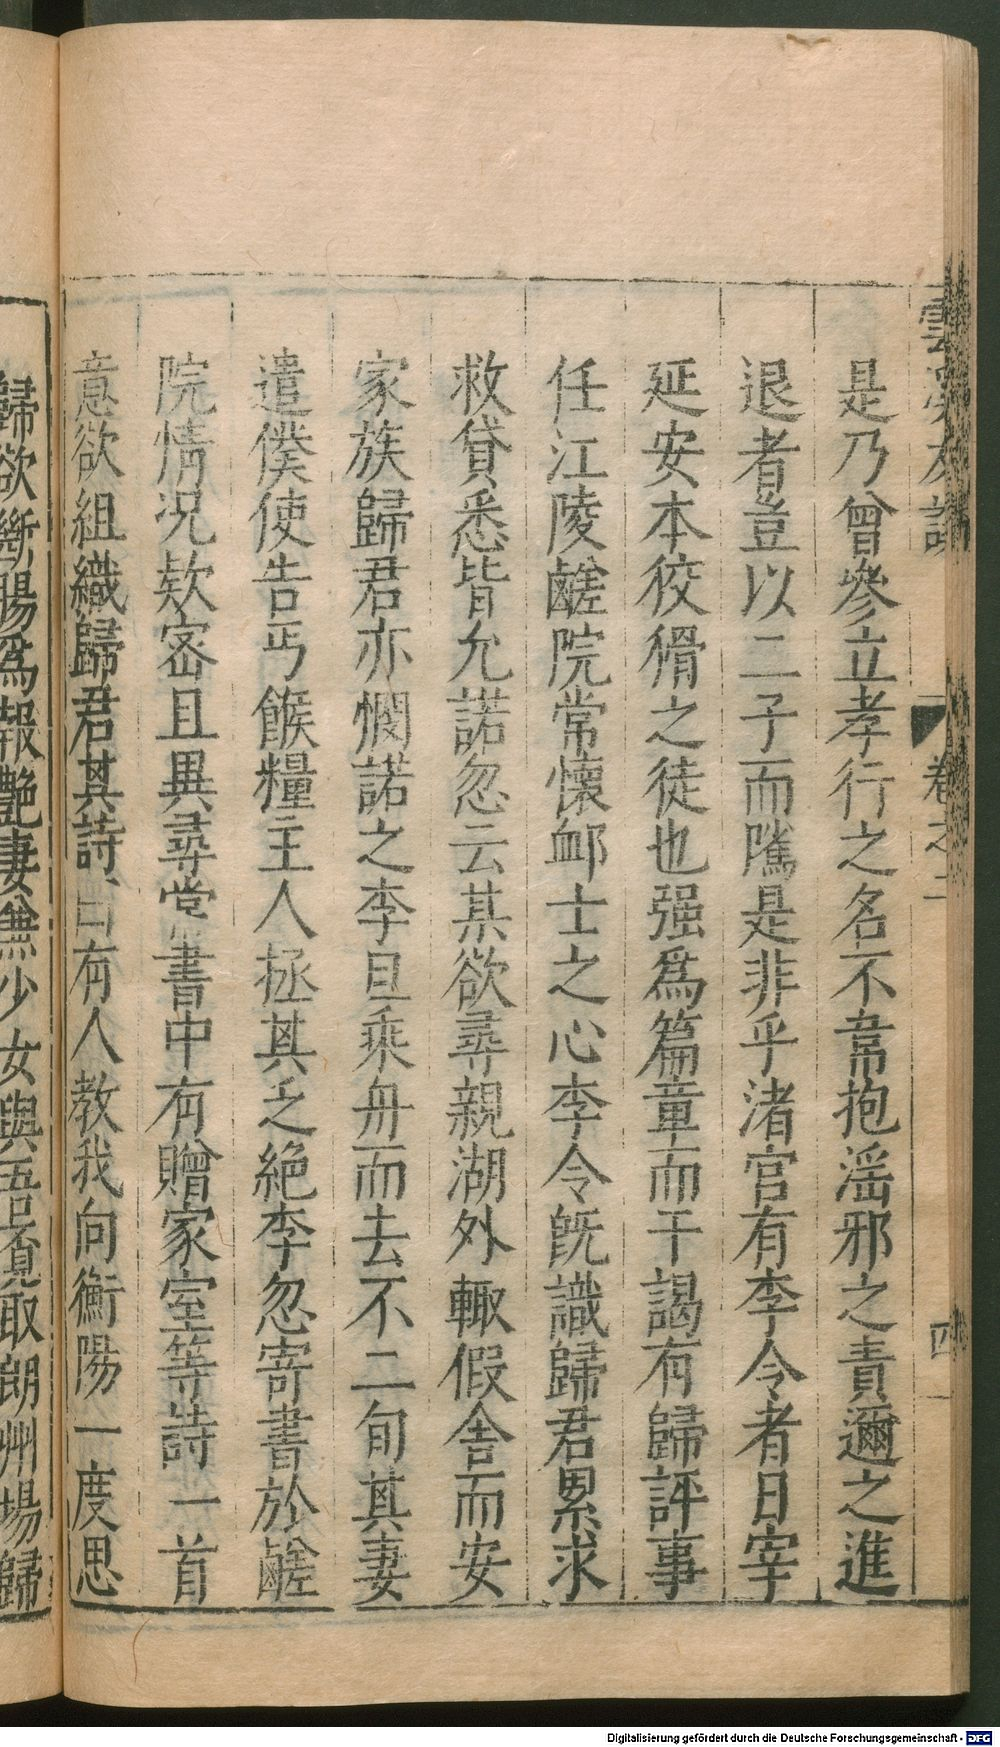 雲溪友議
卷之二
四
是乃曾參立孝行之名不韋抱滛邪之責邇之進
退者豈以二子而隲是非乎渚宮有李令者日宰
延安本狡猾之徒也强爲篇章而干謁有歸評事
任江陵鹺院常懷衈士之心李令旣識歸君累求
救貸悉皆允諾忽云某欲尋親湖外輙假舍而安
家族歸君亦憫諾之李且乘舟而去不二旬其妻
遣僕使告丐餱糧主人拯其乏絶李忽寄書於鹺
院情况欵宻且異尋常書中有贈家室等詩一首
意欲組織歸君其詩曰有人教我向衡陽一度思
歸欲斷腸爲報艶妻兼少女與吾覔取朗州場歸
Digitalisierung gefördert durch die Deutsche Forschungsgemeinschaft - DFG